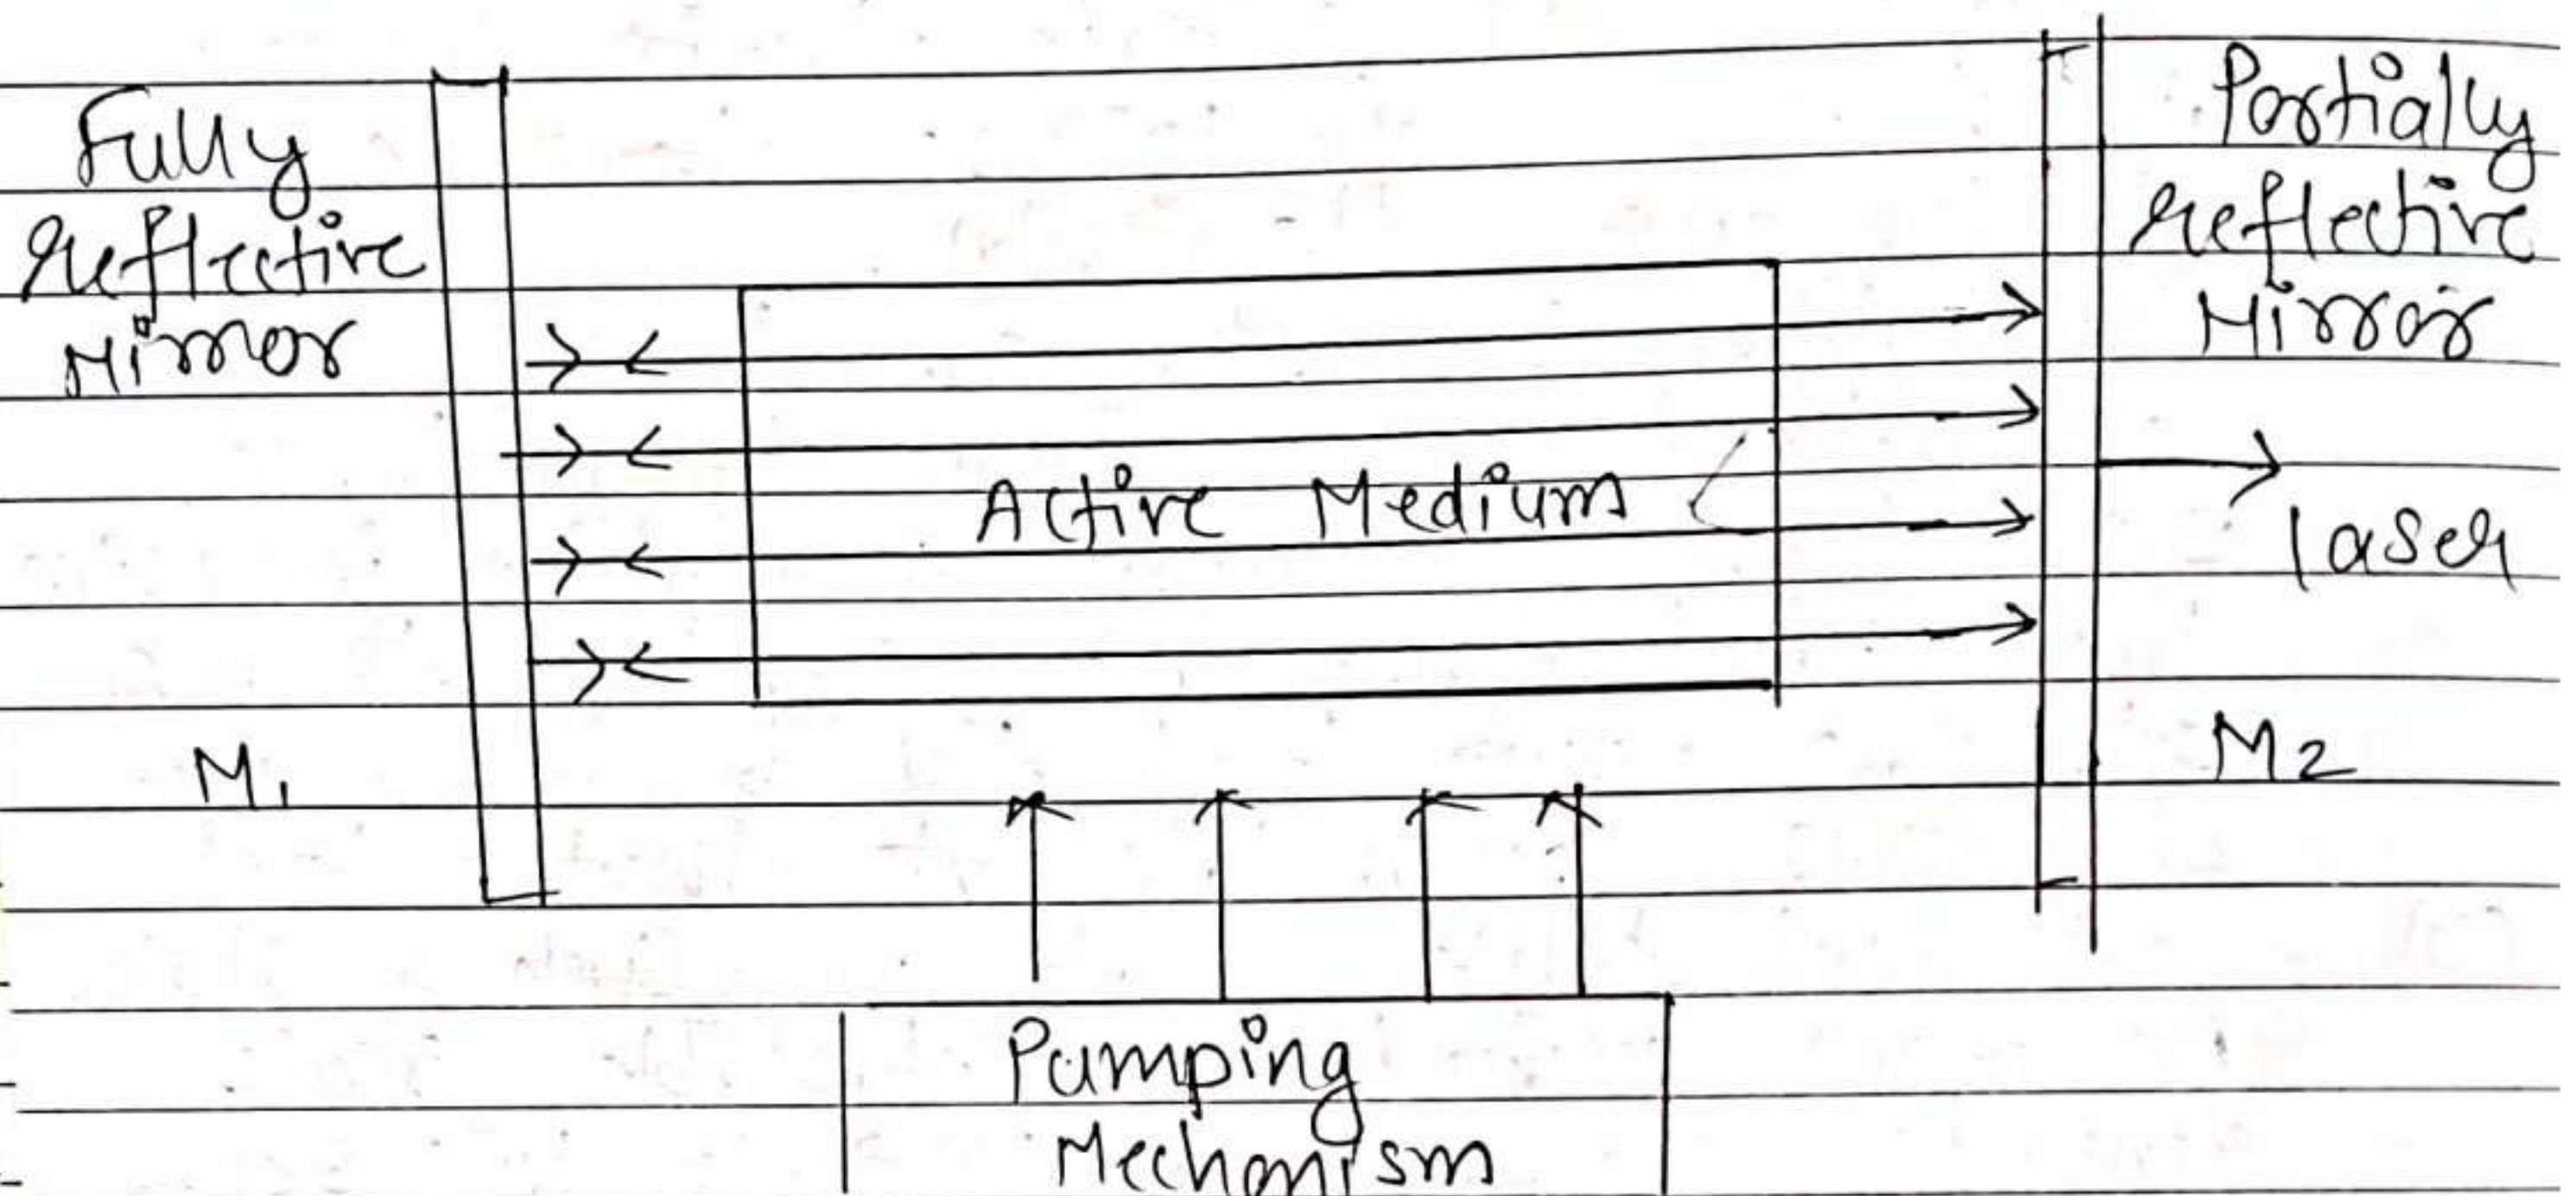 Fully
reflective
Mirror
Partially
reflective
Mirror
Active Medium
laser
M1
M2
Pumping
Mechanism